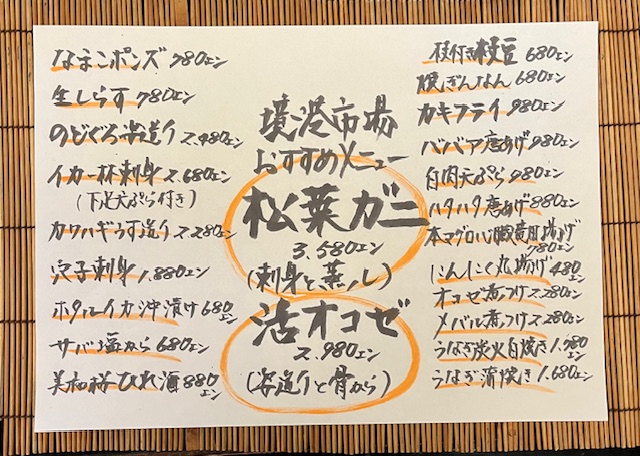 なまこポンズ 780エン
生しらす 780エン
のどぐろ姿造り 2.480エン
イカ一杯刺身 2.680エン
(下足天ぷら付き)
カワハギうす造り 2.280エン
穴子刺身 1.880エン
ホタルイカ沖漬け 680エン
サバ塩から 680エン
ひれ酒 880エン
境港市場
おすすめメニュー
松葉ガニ
3.580エン
(刺身と蒸し)
活オコゼ
2.980エン
(姿造りと骨から)
枝付き枝豆 680エン
焼ぎんなん 680エン
カキフライ 980エン
ババア唐あげ 980エン
白肉天ぷら 980エン
ハタハタ唐あげ 880エン
本マグロ心臓竜田揚げ
780エン
にんにく丸揚げ 480エン
オコゼ煮つけ 2.280エン
メバル煮つけ 2.280エン
うなぎ炭火白焼き 1.580エン
うなぎ蒲焼き 1.680エン